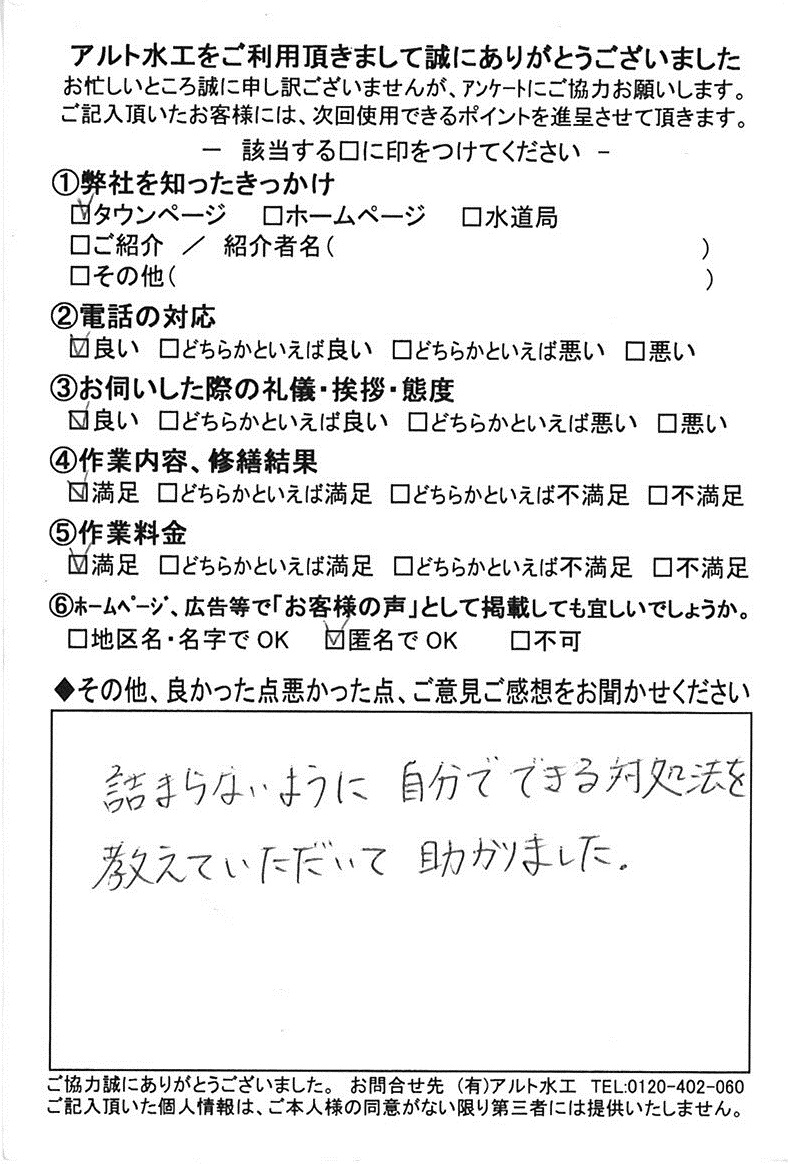 アルト水工をご利用頂きまして誠にありがとうございました
お忙しいところ誠に申し訳ございませんが、ｱﾝｹｰﾄにご協力お願いします。
ご記入頂いたお客様には、次回使用できるポイントを進呈させて頂きます。
－ 該当する□に印をつけてください －
①弊社を知ったきっかけ
☑タウンページ □ホームページ □水道局
□ご紹介 ／ 紹介者名( )
□その他( )
②電話の対応
☑良い □どちらかといえば良い □どちらかといえば悪い □悪い
③お伺いした際の礼儀・挨拶・態度
☑良い □どちらかといえば良い □どちらかといえば悪い □悪い
④作業内容、修繕結果
☑満足 □どちらかといえば満足 □どちらかといえば不満足 □不満足
⑤作業料金
☑満足 □どちらかといえば満足 □どちらかといえば不満足 □不満足
⑥ﾎｰﾑﾍﾟｰｼﾞ、広告等で｢お客様の声｣として掲載しても宜しいでしょうか。
□地区名・名字でOK ☑匿名でOK □不可
◆その他、良かった点悪かった点、ご意見ご感想をお聞かせください
詰まらないように 自分でできる対処法を
教えていただいて 助かりました。
ご協力誠にありがとうございました。 お問合せ先 (有)アルト水工 TEL:0120-402-060
ご記入頂いた個人情報は、ご本人様の同意がない限り第三者には提供いたしません。